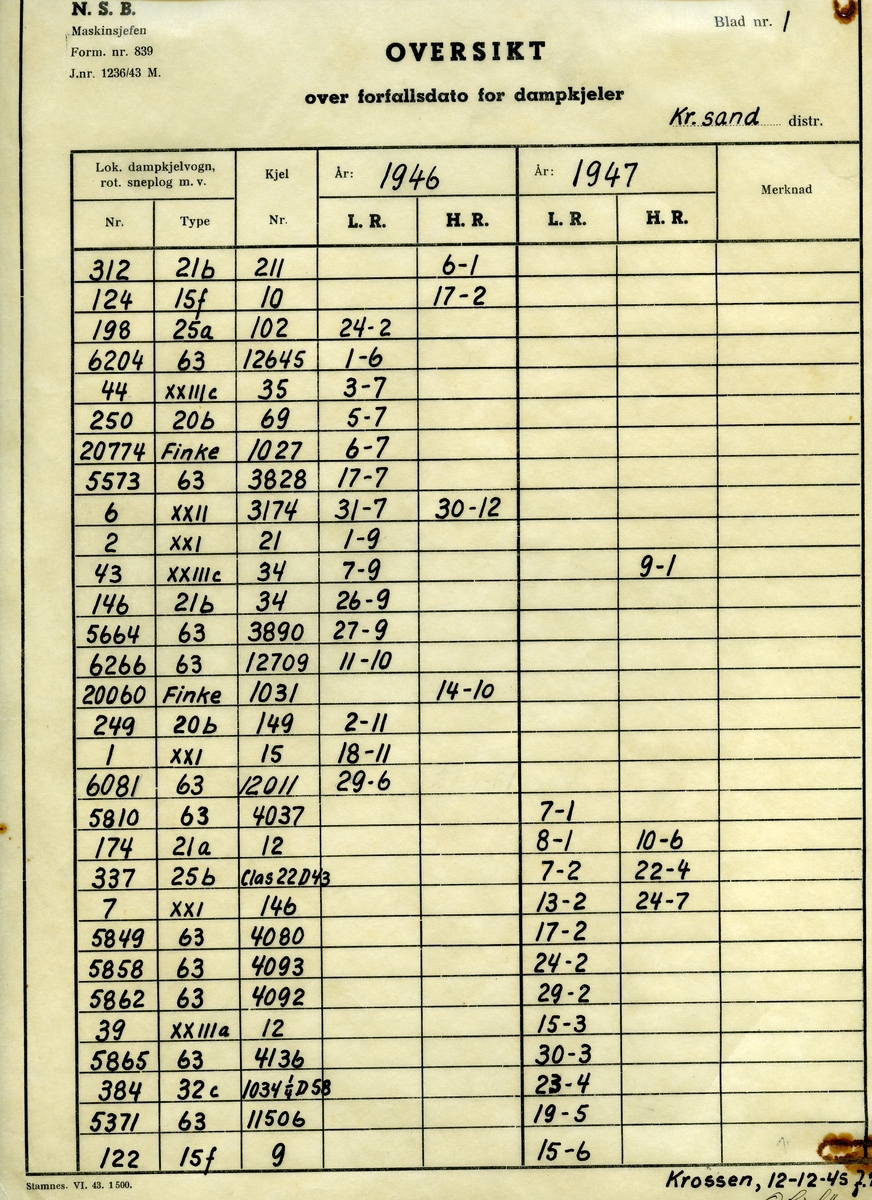 N. S. B.
Maskinsjefen
Form. nr. 839
J.nr. 1236/43 M.
Blad nr. 1
OVERSIKT
over forfallsdato for dampkjeler
Kr. sand distr.
Lok. dampkjelvogn, rot. sneplog m. v. Kjel År: 1946 År: 1947 Merknad
Nr. Type Nr. L. R. H. R. L. R. H. R.
312 21b 211 6-1
124 15f 10 17-2
198 25a 102 24-2
6204 63 12645 1-6
44 XXIIIc 35 3-7
250 20b 69 5-7
20774 Finke 1027 6-7
5573 63 3828 17-7
6 XXII 3174 31-7 30-12
2 XXI 21 1-9
43 XXIIIc 34 7-9 9-1
146 21b 34 26-9
5664 63 3890 27-9
6266 63 12709 11-10
20060 Finke 1031 14-10
249 20b 149 2-11
1 XXI 15 18-11
6081 63 12011 29-6
5810 63 4037 7-1
174 21a 12 8-1 10-6
337 25b Clas 22 D 43 7-2 22-4
7 XXI 146 13-2 24-7
5849 63 4080 17-2
5858 63 4093 24-2
5862 63 4092 29-2
39 XXIIIa 12 15-3
5865 63 4136 30-3
384 32c 1034 ¼ D 58 23-4
5371 63 11506 19-5
122 15f 9 15-6
Stamnes. VI. 43. 1500.
Krossen, 12-12-45